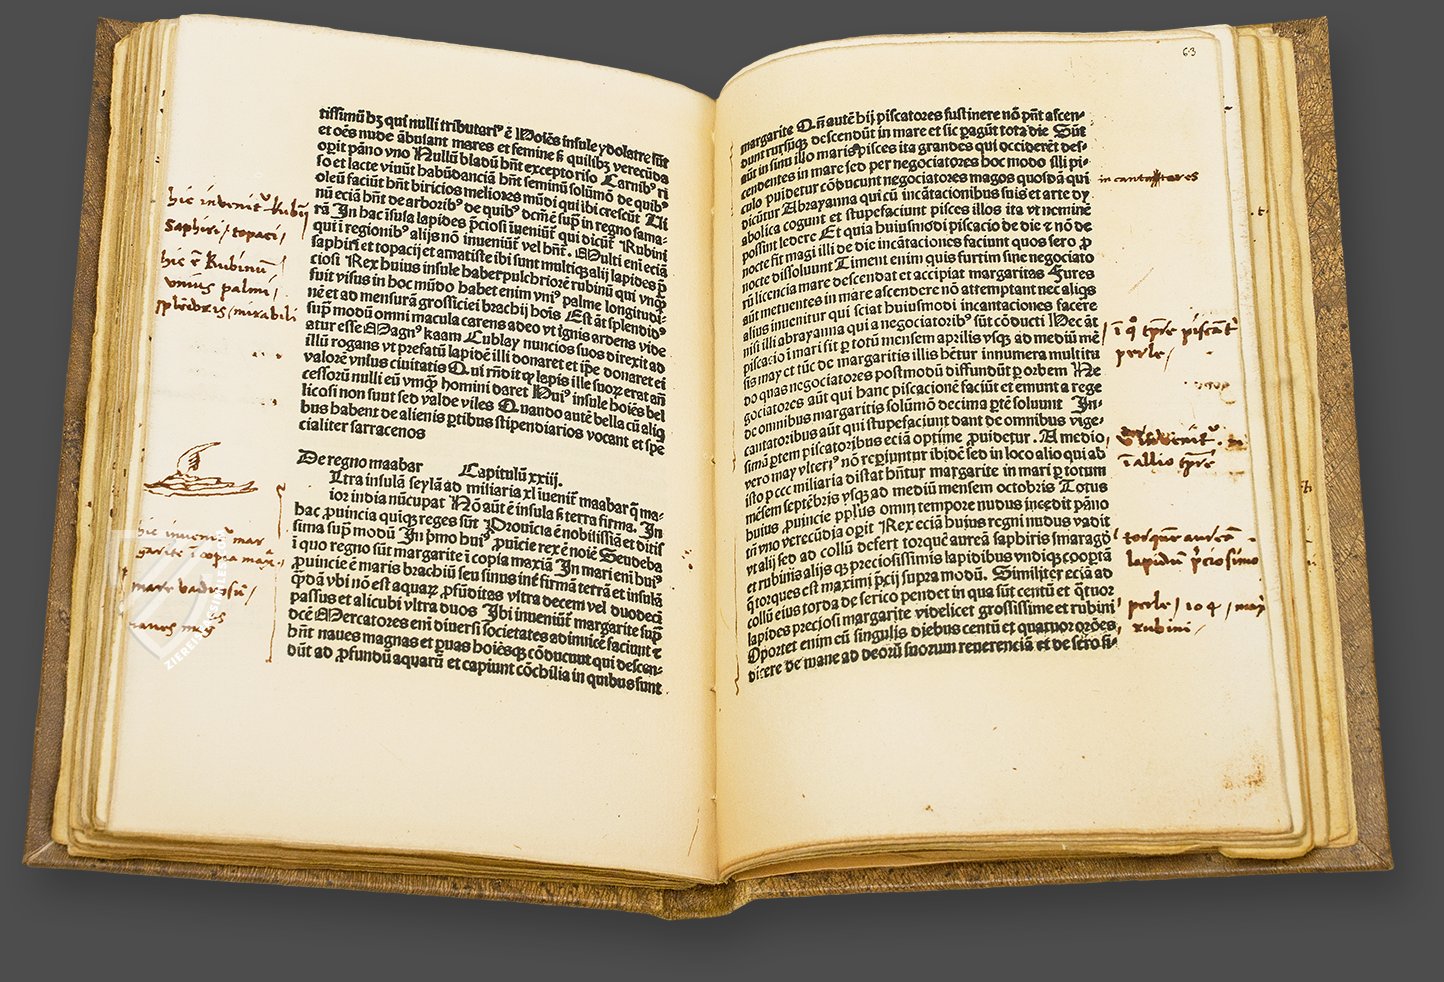 tissimū bʒ qui nulli tributariꝰ ē Hoiēs insule ydolatre sūt
et oēs nude ābulant mares et femine ß quilibʒ verecūda
oꝑit pāno vno Nullū bladū hn̄t excepto riso Carnibꝰ ri
so et lacte viuūt habūdanciā hn̄t seminū solūmō de quibꝰ
oleū faciūt hn̄t biricios meliores mūdi qui ibi crescūt Ui
nū eciā hn̄t de arboribꝰ de quibꝰ dcm̄ ē supͥ in regno sama-
rā In hac īsula lapides p̄ciosi īueniūt᷑ qui dicūt᷑ Rubini
qui ī regionibꝰ alijs nō inueniūt᷑ vel hn̄t᷑. Multi eni eciā
saphiri et topacij et amatiste ibi sunt multiqꝫ alij lapides p̄
ciosi Rex huius insule habet pulchriorē rubinū qui vnqꝫ
fuit visus in hoc mūdo habet enim vniꝰ palme longitudi-
nē et ad mensurā grossiciei brachij hoīs Est āt splendidꝰ
supͥ modū omni macula carens adeo vt ignis ardens vide
atur esse Magnꝰ kaam Cublay nuncios suos direxit ad
illū rogans vt prefatū lapidē illi donaret et ip̄e donaret ei
valorē vnius ciuitatis Qui rn̄dit qꝫ lapis ille suoꝝ erat an̄
cessorū nulli eū vmqꝫ homini daret Huiꝰ insule hoiēs bel
licosi non sunt sed valde viles Quando autē bella cū aliqꝫ
bus habent de alienis ꝑtibus stipendiarios vocant et spe
cialiter sarracenos
De regno maabar Capitulū xxiij.
Ultra insulā seylā ad miliaria xl īuenit᷑ maabar q̄ ma-
ior india nūcupat᷑ Nō aūt ē insula ß terra firma. In
hac ꝓuincia quiqꝫ reges sūt Prouicia ē nobilissiā et ditis
sima supͥ modū In p̄mo huiꝰ ꝓuīcie rex ē noīe Sendeba
ī quo regno sūt margarite ī copia maxiā In mari eni huiꝰ
ꝓuincie ē maris brachiū seu sinus int̄ firmā terrā et insulā
q̄dā vbi nō est aquaꝝ ꝓfūditas vltra decem vel duodecī
passus et alicubi vltra duos Ibi īueniūt᷑ margarite supͥ
dcē Mercatores eni diuersi societates adinuicē faciunt ⁊
hn̄t naues magnas et ꝑuas hoiēsqꝫ cōducunt qui descen-
dūt ad ꝓfundū aquarū et capiunt cōchilia in quibus sunt
hic invenit᷑ Rubiī
Saphiri / topaci /
hic ē Rubinū /
vnius palmi /
splēdoris / mirabili
hic inueniūt᷑ mar
garite ī copia max.
mare vadosū /
naues
63
margarite Qn̄ autē hij piscatores sustinere nō pn̄t ascen-
dunt rursūqꝫ descendūt in mare et sic ꝑagūt tota die Sūt
aūt in sinu illo maris pisces ita grandes qui occiderēt des-
cendentes in mare sed per negociatores hoc modo illi pi-
culo ꝓuidetur cōducunt negociatores magos quosdā qui
dicūtur Abrayanna qui cū incātacionibus suis et arte dy
abolica cogunt et stupefaciunt pisces illos ita vt neminē
possint ledere Et quia huiusmodi piscacio de die ⁊ nō de
nocte fit magi illi de die incātaciones faciunt quos sero ꝓ
nocte dissoluunt Timent enim quis furtim sine negociato
rū licencia mare descendat et accipiat margaritas Fures
aūt metuentes in mare ascendere nō attemptant nec aliqs
alius inuenitur qui sciat huiusmodi incantaciones facere
nisi illi abrayanna qui a negociatoribꝰ sūt cōducti Hec āt
piscacio ī mari fit ꝑ totū mensem aprilis vsqꝫ ad mediū mē
sis may et tūc de margaritis illis hētur innumera multitu
do quas negociatores postmodū diffundūt ꝑ orbem Ne
gociatores aūt qui hanc piscacionē faciūt et emunt a rege
de omnibus margaritis solūmō decima ꝑtē soluunt In-
cantatoribus aūt qui stupefaciunt dant de omnibus vige-
simā ꝑtem piscatoribus eciā optime ꝓuidetur. A medio
vero may vlteriꝰ nō reꝑiuntur ibidē sed in loco alio qui ad
isto ꝑ ccc miliaria distat hn̄tur margarite in mari ꝑ totum
mēsem septēbris vsqꝫ ad mediū mensem octobris Totus
huius ꝓuincie ꝓplus omni tempore nudus incedit pāno
tn̄ vno verecūdia oꝑit Rex eciā huius regni nudus vadit
vt alij sed ad collū defert torquē aureā saphiris smaragd̓
et rubinis alijsqꝫ preciosissimis lapidibus vndiqꝫ coopta
q̄ torques est maximi p̄cij supra modū. Similiter eciā ad
collū eius torda de serico pendet in qua sūt centū et q̄tuor
lapides preciosi margarite videlicet grossissime et rubini
Oportet enim eū singulis diebus centū et quatuor orōes
dicere de mane ad deorū suorum reuerenciā et de sero si-
incantatores
ī qͦ tp̄re piscāt᷑
perle /
inuenit᷑
ī allio tp̄re
torquē aureā
lapidū p̄ciosimo
perle / 104 / may
rubini /